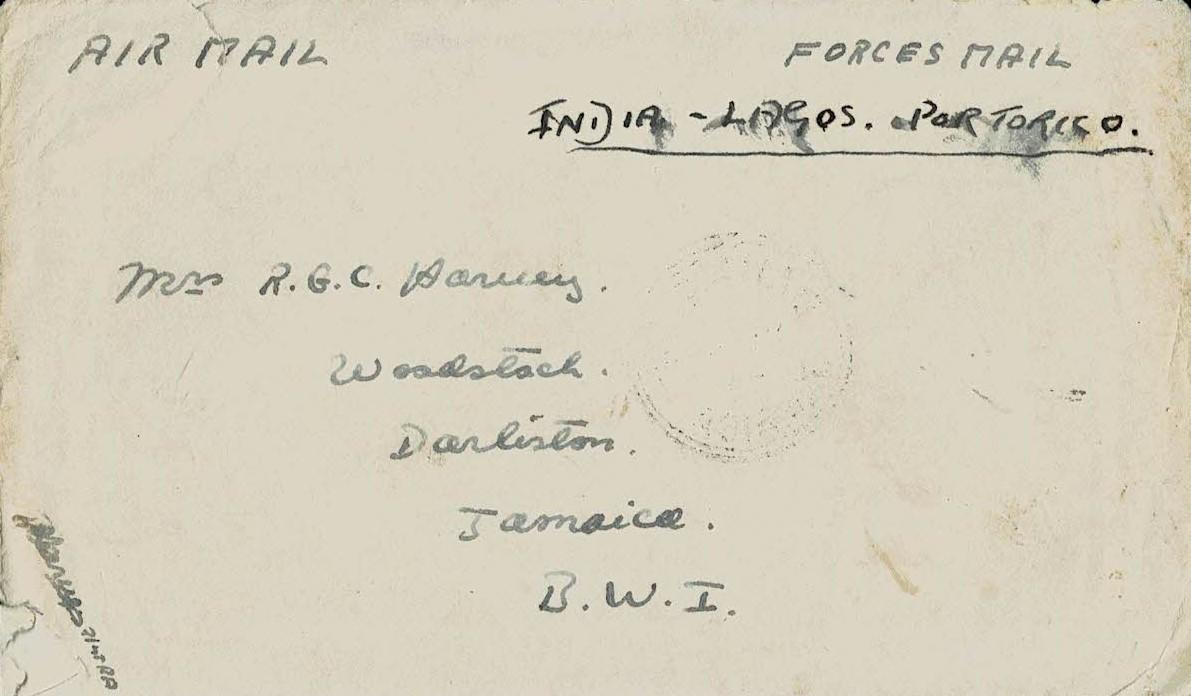 AIR MAIL
FORCES MAIL
INDIA - LAGOS. PORTORICO.
Mrs R.G.C. Harvey.
Woodstock.
Darliston.
Jamaica.
B.W.I.